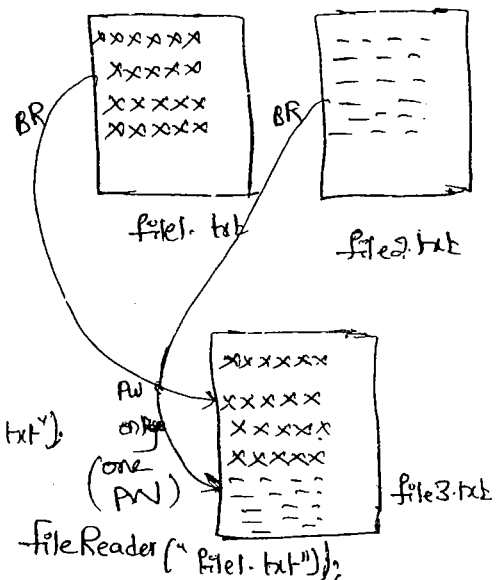 xxxxxx
xxxxx
xxxxx
xxxxx
BR
BR
file1.txt
file2.txt
xxxxxx
xxxxx
xxxxx
xxxxx
PW
txt");
(one
PW)
file3.txt
FileReader("file1.txt"));